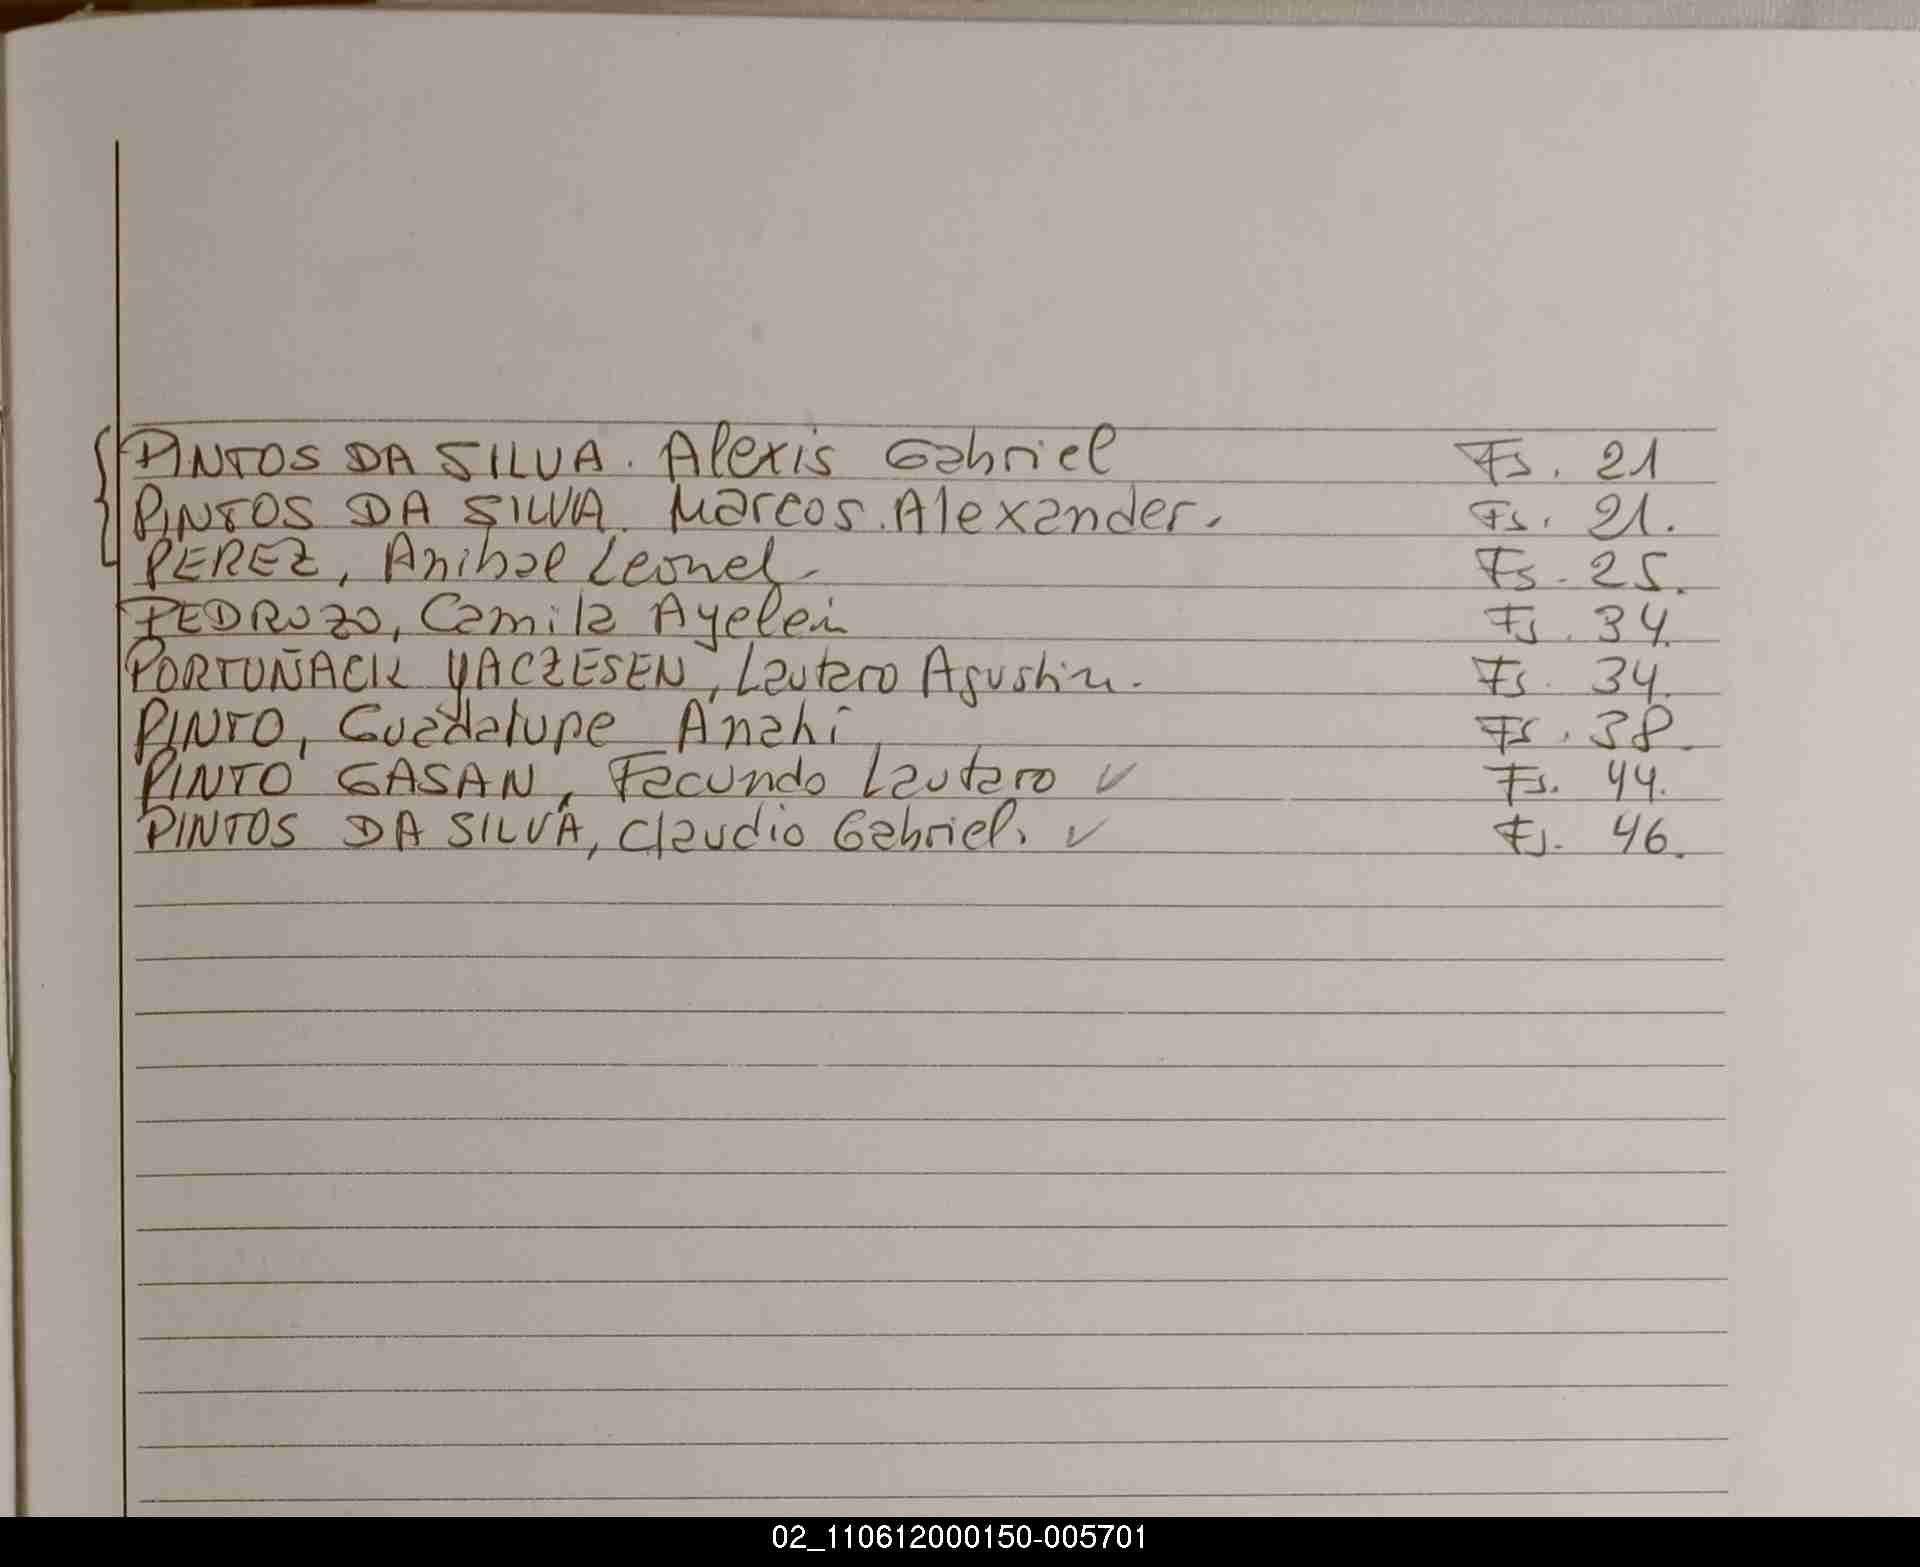 PINTOS DA SILVA. Alexis Gabriel Fs. 21
PINTOS DA SILVA. Marcos. Alexander. Fs. 21.
PEREZ, Anibal Leonel Fs. 25.
PEDROZO, Camila Ayelein Fs. 34.
PORTUÑACK YACZESEN, Lautaro Agustin. Fs. 34.
PINTO, Guadalupe Anahi Fs. 38.
PINTO GASAN, Facundo Lautaro ✓ Fs. 44.
PINTOS DA SILVA, Claudio Gabriel. ✓ Fs. 46.
02_110612000150-005701